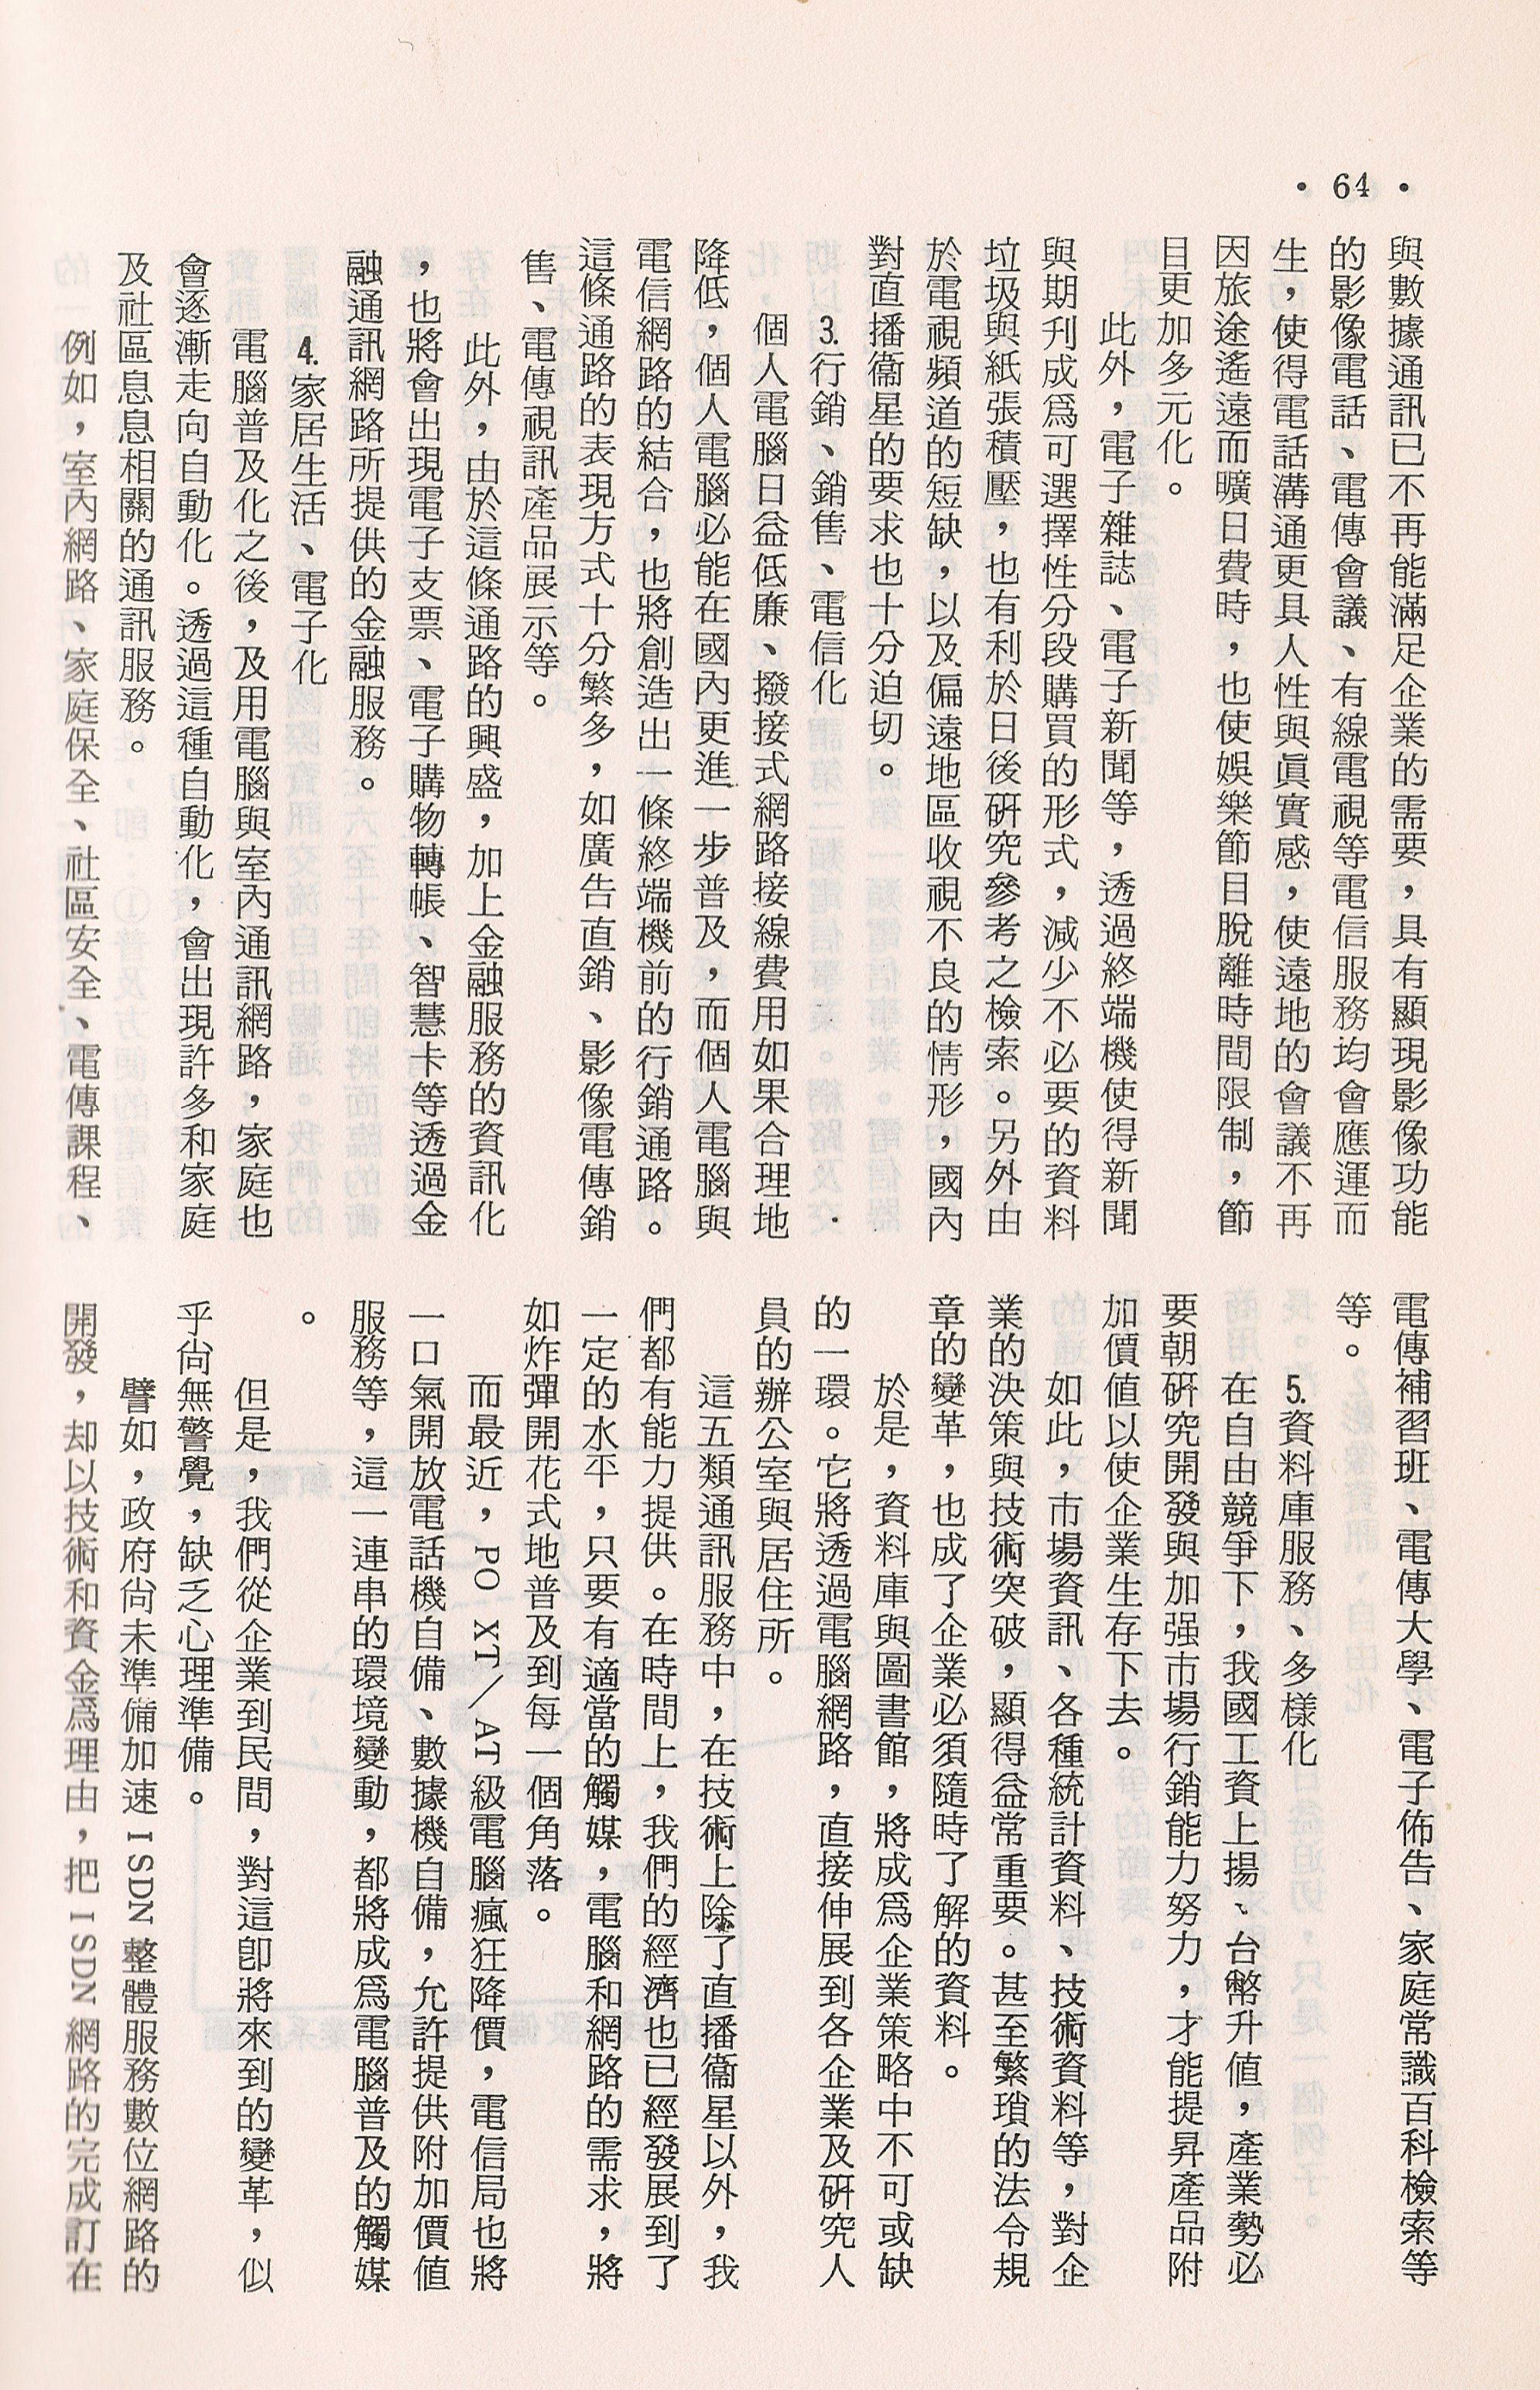 • 64 •
與數據通訊已不再能滿足企業的需要，具有顯現影像功能
的影像電話、電傳會議、有線電視等電信服務均會應運而
生，使得電話溝通更具人性與眞實感，使遠地的會議不再
因旅途遙遠而曠日費時，也使娛樂節目脫離時間限制，節
目更加多元化。
此外，電子雜誌、電子新聞等，透過終端機使得新聞
與期刋成爲可選擇性分段購買的形式，減少不必要的資料
垃圾與紙張積壓，也有利於日後硏究參考之檢索。另外由
於電視頻道的短缺，以及偏遠地區收視不良的情形，國內
對直播衞星的要求也十分迫切。
3.行銷、銷售、電信化
個人電腦日益低廉、撥接式網路接線費用如果合理地
降低，個人電腦必能在國內更進一步普及，而個人電腦與
電信網路的結合，也將創造出一條終端機前的行銷通路。
這條通路的表現方式十分繁多，如廣告直銷、影像電傳銷
售、電傳視訊產品展示等。
此外，由於這條通路的興盛，加上金融服務的資訊化
，也將會出現電子支票、電子購物轉帳、智慧卡等透過金
融通訊網路所提供的金融服務。
4.家居生活、電子化
電腦普及化之後，及用電腦與室內通訊網路，家庭也
會逐漸走向自動化。透過這種自動化，會出現許多和家庭
及社區息息相關的通訊服務。
例如，室內網路、家庭保全、社區安全、電傳課程、
電傳補習班、電傳大學、電子佈告、家庭常識百科檢索等
等。
5.資料庫服務、多樣化
在自由競爭下，我國工資上揚、台幣升值，產業勢必
要朝硏究開發與加强市場行銷能力努力，才能提昇產品附
加價值以使企業生存下去。
如此，市場資訊、各種統計資料、技術資料等，對企
業的決策與技術突破，顯得益常重要。甚至繁瑣的法令規
章的變革，也成了企業必須隨時了解的資料。
於是，資料庫與圖書館，將成爲企業策略中不可或缺
的一環。它將透過電腦網路，直接伸展到各企業及硏究人
員的辦公室與居住所。
這五類通訊服務中，在技術上除了直播衞星以外，我
們都有能力提供。在時間上，我們的經濟也已經發展到了
一定的水平，只要有適當的觸媒，電腦和網路的需求，將
如炸彈開花式地普及到每一個角落。
而最近，PO XT／AT級電腦瘋狂降價，電信局也將
一口氣開放電話機自備、數據機自備，允許提供附加價值
服務等，這一連串的環境變動，都將成爲電腦普及的觸媒
。
但是，我們從企業到民間，對這卽將來到的變革，似
乎尚無警覺，缺乏心理準備。
譬如，政府尚未準備加速 ISDN 整體服務數位網路的
開發，却以技術和資金爲理由，把 ISDN 網路的完成訂在